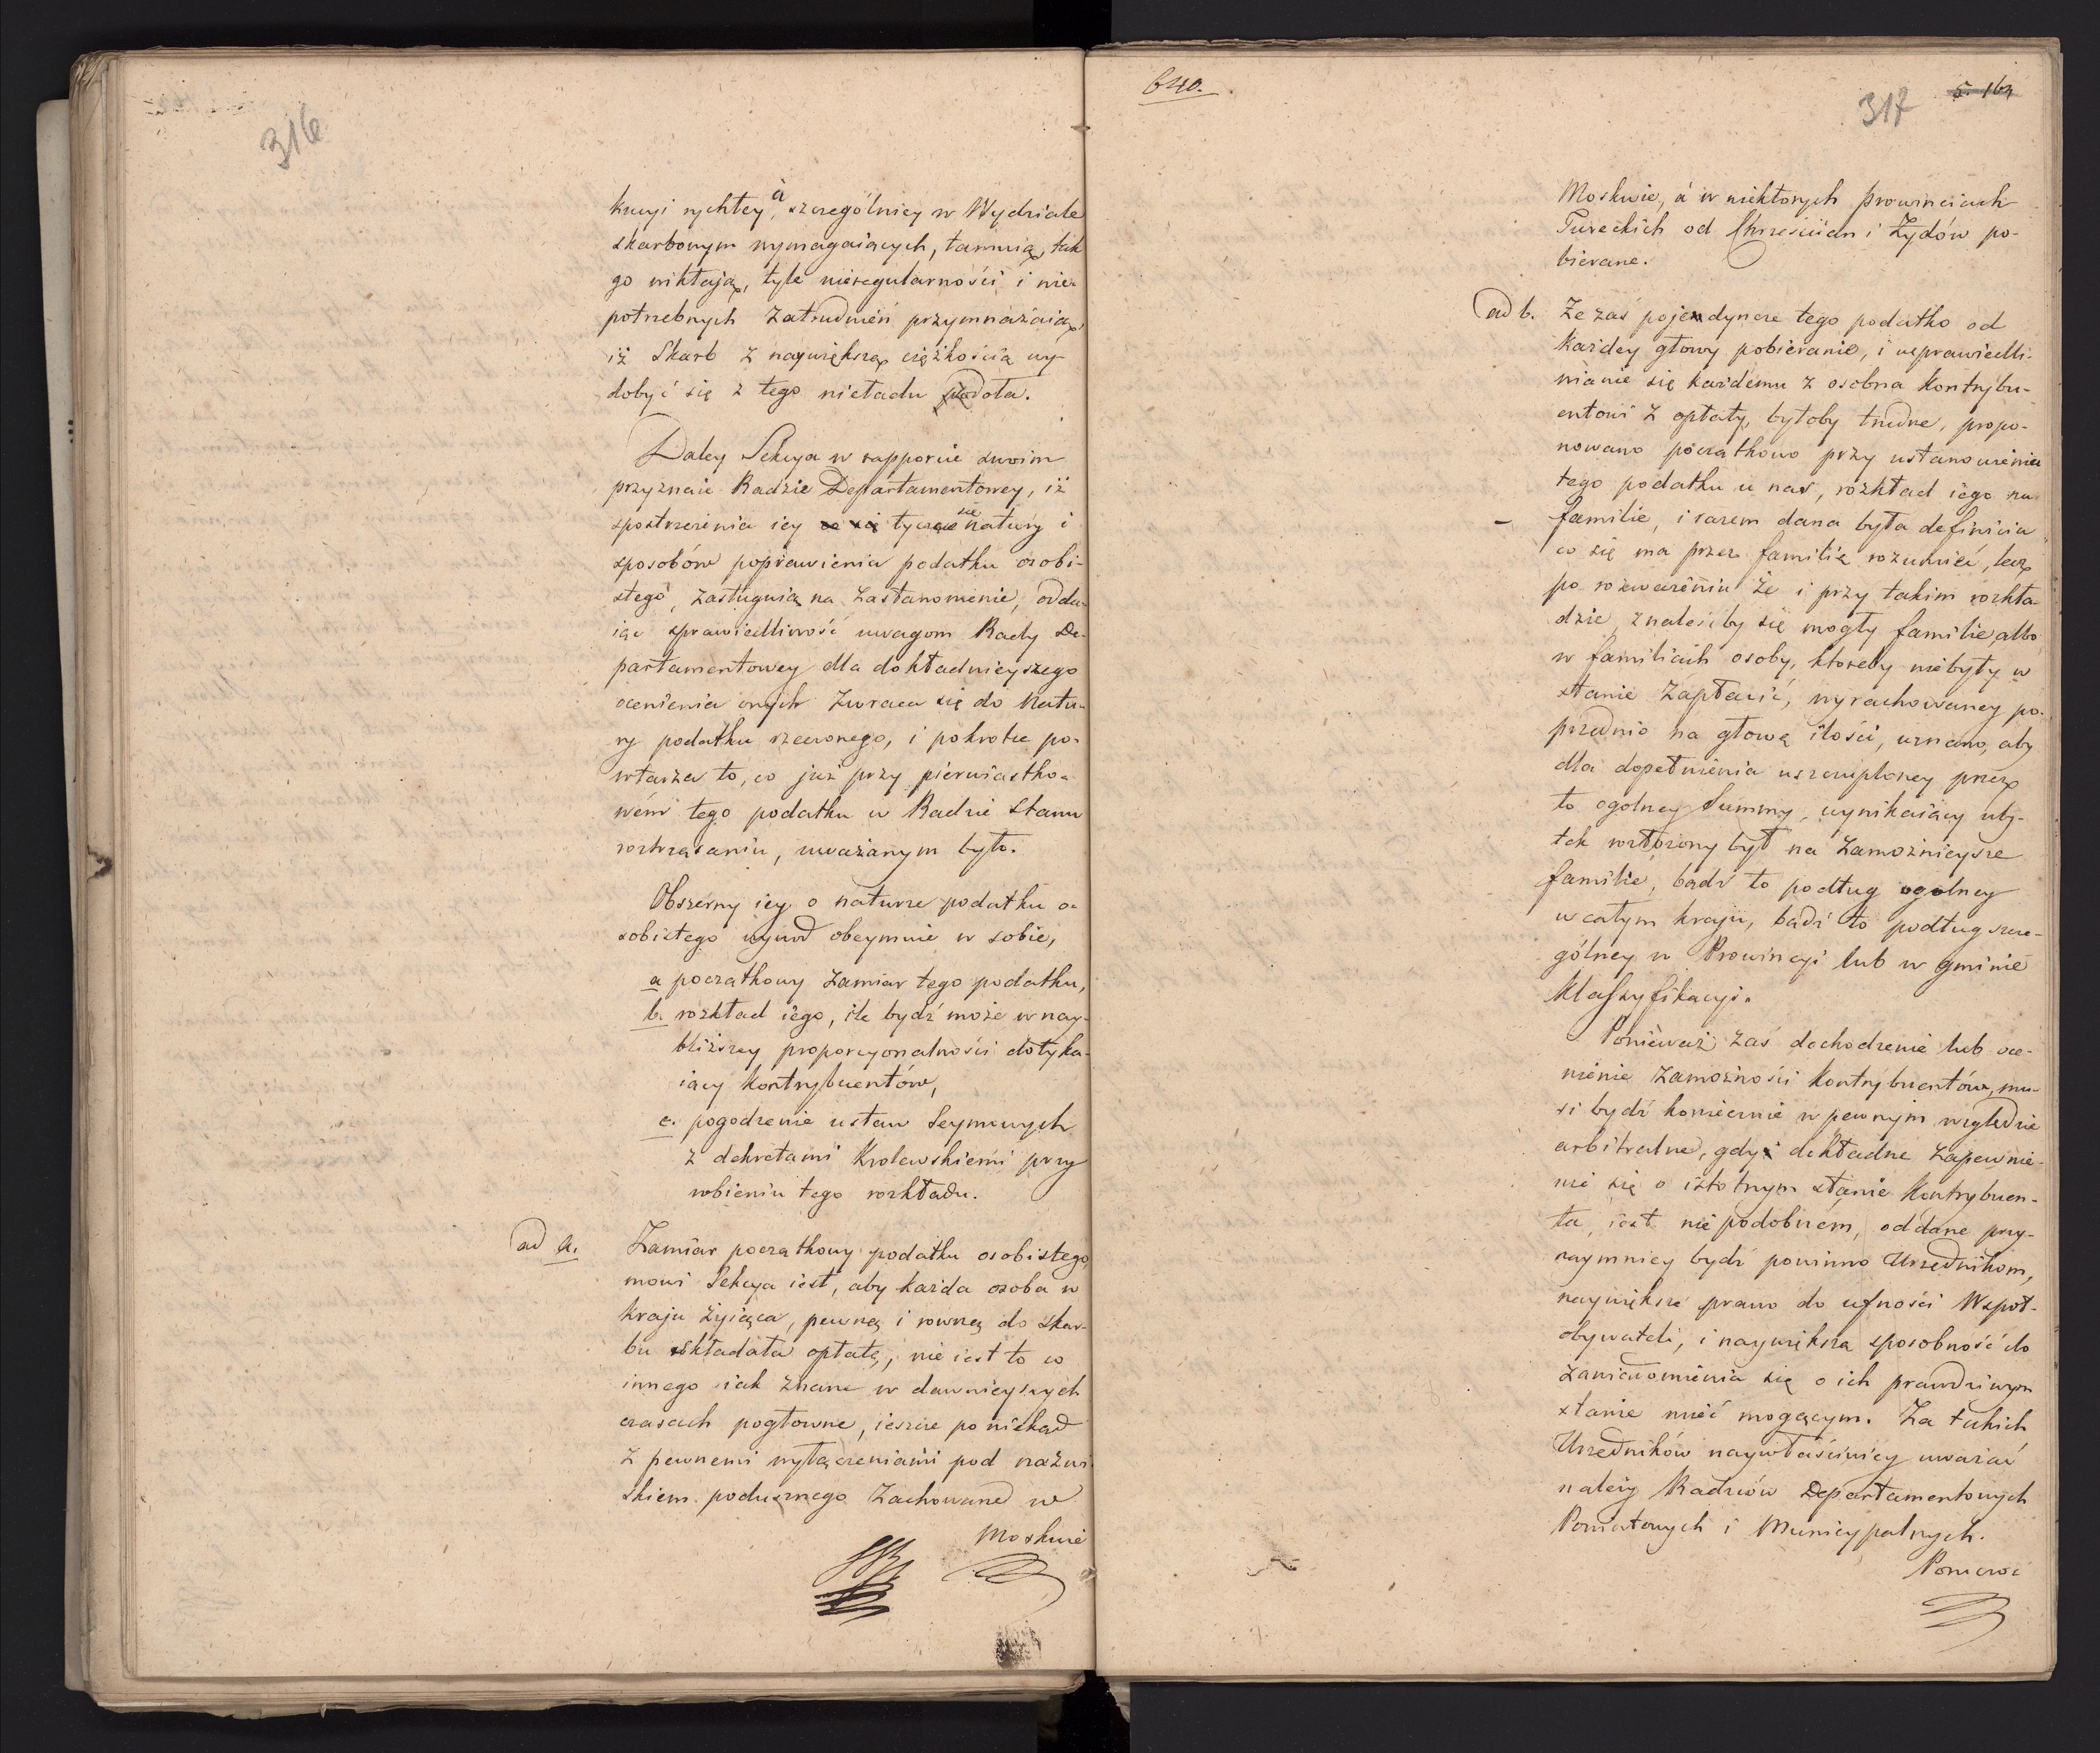 316
kucyi rychłey, á szczególniey w Wydziale
skarbowym wymagaiących, tamuią, tak
go wikłają, tyle nieregularności i nie-
potrzebnych zatrudnień przymnażaią,
iż Skarb z naywiększą ciężkością wy-
dobyć się z tego nieładu zdoła.
Daley Sekcya w rapporcie swoim
przyznaie Radzie Departamentowey, iż
spostrzeżenia iey tyczące się natury i
sposobów poprawienia podatku osobi-
stego, zasługuią na zastanowienie, odda-
iąc sprawiedliwość uwagom Rady De-
partamentowey dla dokładnieyszego
ocenienia onych zwraca się do natu-
ry podatku rzeczonego, i pokrotce po-
wtarza to, co już przy pierwiastko-
wém tego podatku w Radzie Stanu
roztrząsaniu, uważanym było.
Obszerny iey o naturze podatku o-
sobistego wywód obeymuie w sobie,
a początkowy zamiar tego podatku,
b. rozkład iego, ile bydź może w nay-
bliższey proporcyonalności dotyka-
iący kontrybuentów,
c. pogodzenie ustaw Seymowych
z dekretami Krolewskiemi przy
robieniu tego rozkładu.
ad a. Zamiar początkowy podatku osobistego,
mowi Sekcya iest, aby każda osoba w
kraju żyiąca, pewną i rowną do skar-
bu składała opłatę, nie iest to co
innego iak znane w dawnieyszych
czasach pogłowne, ieszcze poniekąd
z pewnemi wyłączeniami pod nazwi-
skiem podusznego zachowane w
Moskwie
640.
317
5. 164
Moskwie, á w niektorych prowinciach
Tureckich od Chrześciian i Żydów po-
bierane.
ad b. Że zaś pojedyncze tego podatko od
każdey głowy pobieranie, i usprawiedli-
wianie się każdemu z osobna kontrybu-
entowi z opłaty, byłoby trudne, propo-
nowano początkowo przy ustanowieniu
tego podatku u nas, rozkład iego na
familie, i razem dana była definicia
co się ma przez familią rozumieć, lecz
po rozważeniu że i przy takim rozkła-
dzie, znaleśćby się mogły familie, albo
w familiach osoby, ktoreby niebyły w
stanie zapłacić, wyrachowaney po-
przednio na głowę ilości, uznano, aby
dla dopełnienia uszczuploney przez
to ogolney Summy, wynikaiący uby-
tek rozłożony był na zamożnieysze
familie, bądź to podług ogolney
w całym kraju, bądź to podług szcze-
gólney w Prowincyi lub w gminie
klassyfikacyi.
Ponieważ zaś dochodzenie lub oce-
nienie zamożności kontrybuentów, mu-
si bydź koniecznie w pewnym względzie
arbitralne, gdy dokładne zapewnie-
nie się o istotnym stanie kontrybuen-
ta, iest niepodobném, oddane przy-
naymniey bydź powinno Urzędnikom,
naywiększe prawo do ufności Wspoł-
obywateli, i naywiększą sposobność do
zawiadomienia się o ich prawdziwym
stanie mieć mogącym. Za takich
Urzędników naywłaściwiey uważać
należy Radzców Departamentowych
Powiatowych i Municypalnych.